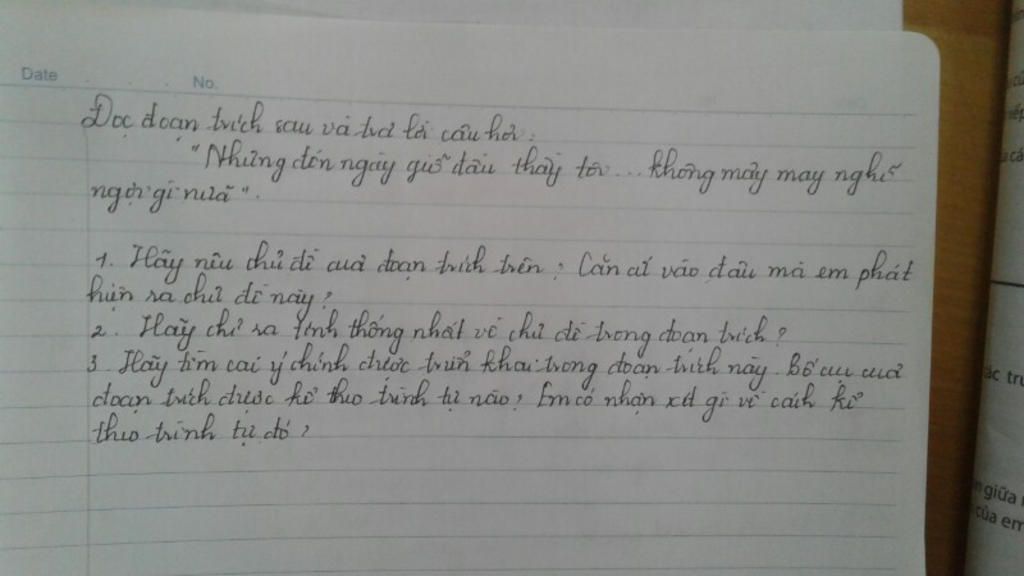 Date . . . No.
Đọc đoạn trích sau và trả lời câu hỏi:
"Nhưng đến ngày giỗ đầu thầy tôi ... không mảy may nghĩ
ngợi gì nữa".
1. Hãy nêu chủ đề của đoạn trích trên? Căn cứ vào đâu mà em phát
hiện ra chủ đề này?
2. Hãy chỉ ra tính thống nhất về chủ đề trong đoạn trích?
3. Hãy tìm các ý chính được triển khai trong đoạn trích này. Bố cục của
đoạn trích được kể theo trình tự nào? Em có nhận xét gì về cách kể
theo trình tự đó?
ác trư
giữa
của em